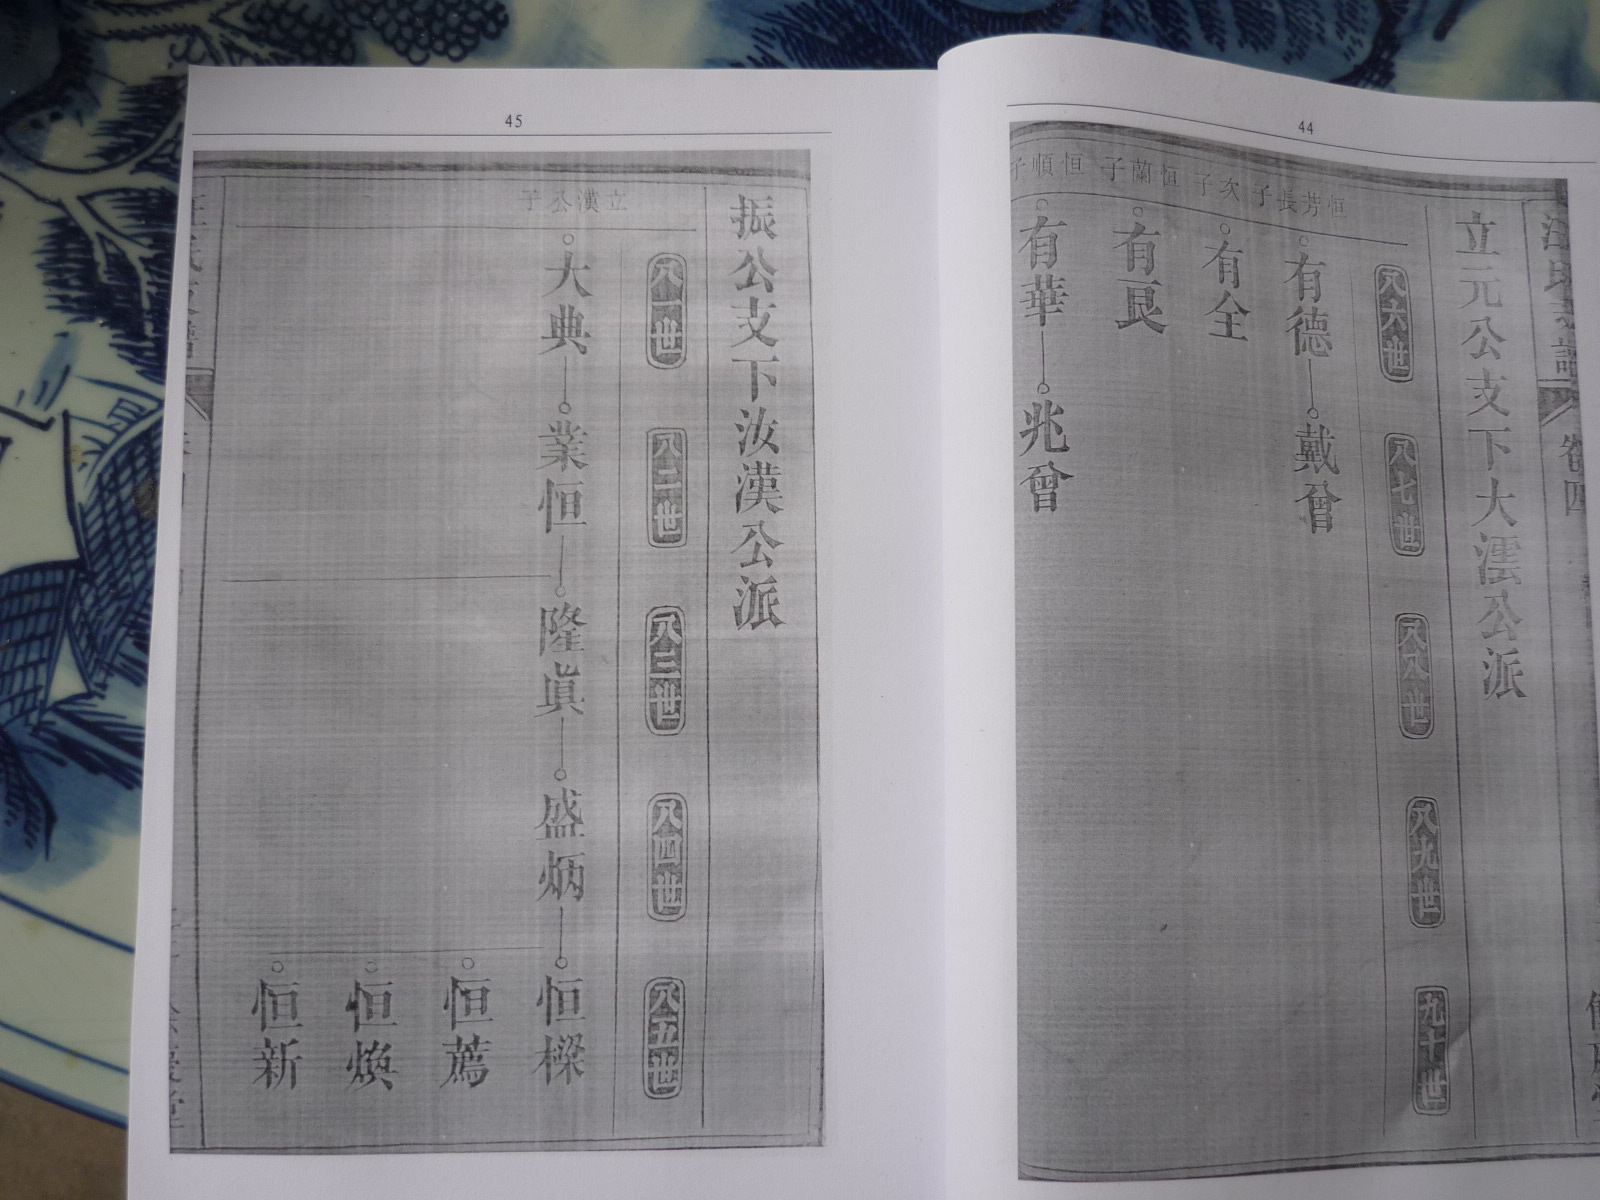 44
卷四
立元公支下大澐公派
八六世
八七世
八八世
八九世
九十世
恒芳長子
有德
戴曾
次子
有全
恒蘭子
有良
恒順子
有華
兆曾
45
振公支下汝漢公派
八一世
八二世
八三世
八四世
八五世
立漢公子
大典
業恒
隆眞
盛炳
恒樑
恒薦
恒煥
恒新